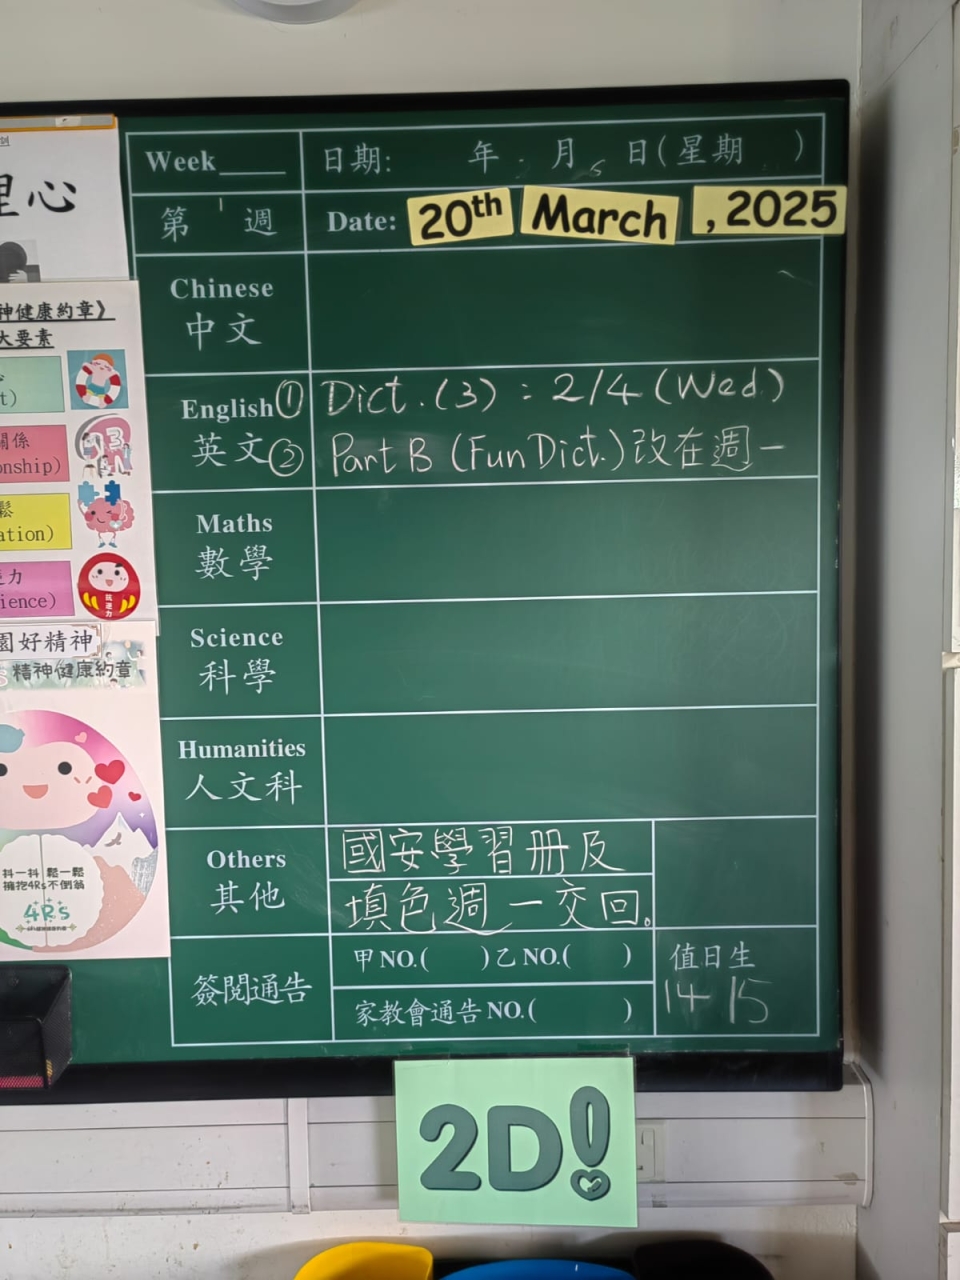 理心
神健康約章》
大要素
t)
關係
onship)
鬆
ation)
力
ience)
抗逆力
園好精神
精神健康約章
抖一抖 鬆一鬆
擁抱4Rs不倒翁
4Rs
Week____ 日期: 年 月 日(星期 )
第 週 Date: 20th March , 2025
Chinese
中文
English ① Dict. (3) : 2/4 (Wed.)
英文 ② Part B (Fun Dict.) 改在週一
Maths
數學
Science
科學
Humanities
人文科
Others 國安學習册及
其他 填色週一交回。
簽閱通告 甲NO.( )乙NO.( ) 值日生
家教會通告NO.( ) 14 15
2D!